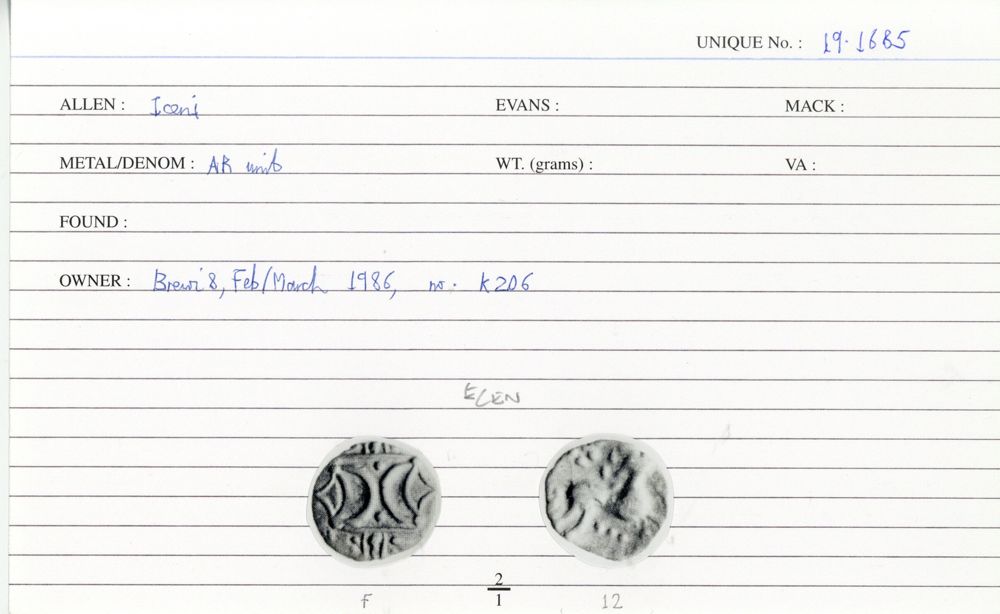 UNIQUE No. : 19.1685
ALLEN : Iceni EVANS : MACK :
METAL/DENOM : AR unit WT. (grams) : VA :
FOUND :
OWNER : Feb/March 1986, no. K206
ECEN
2
F 1 12